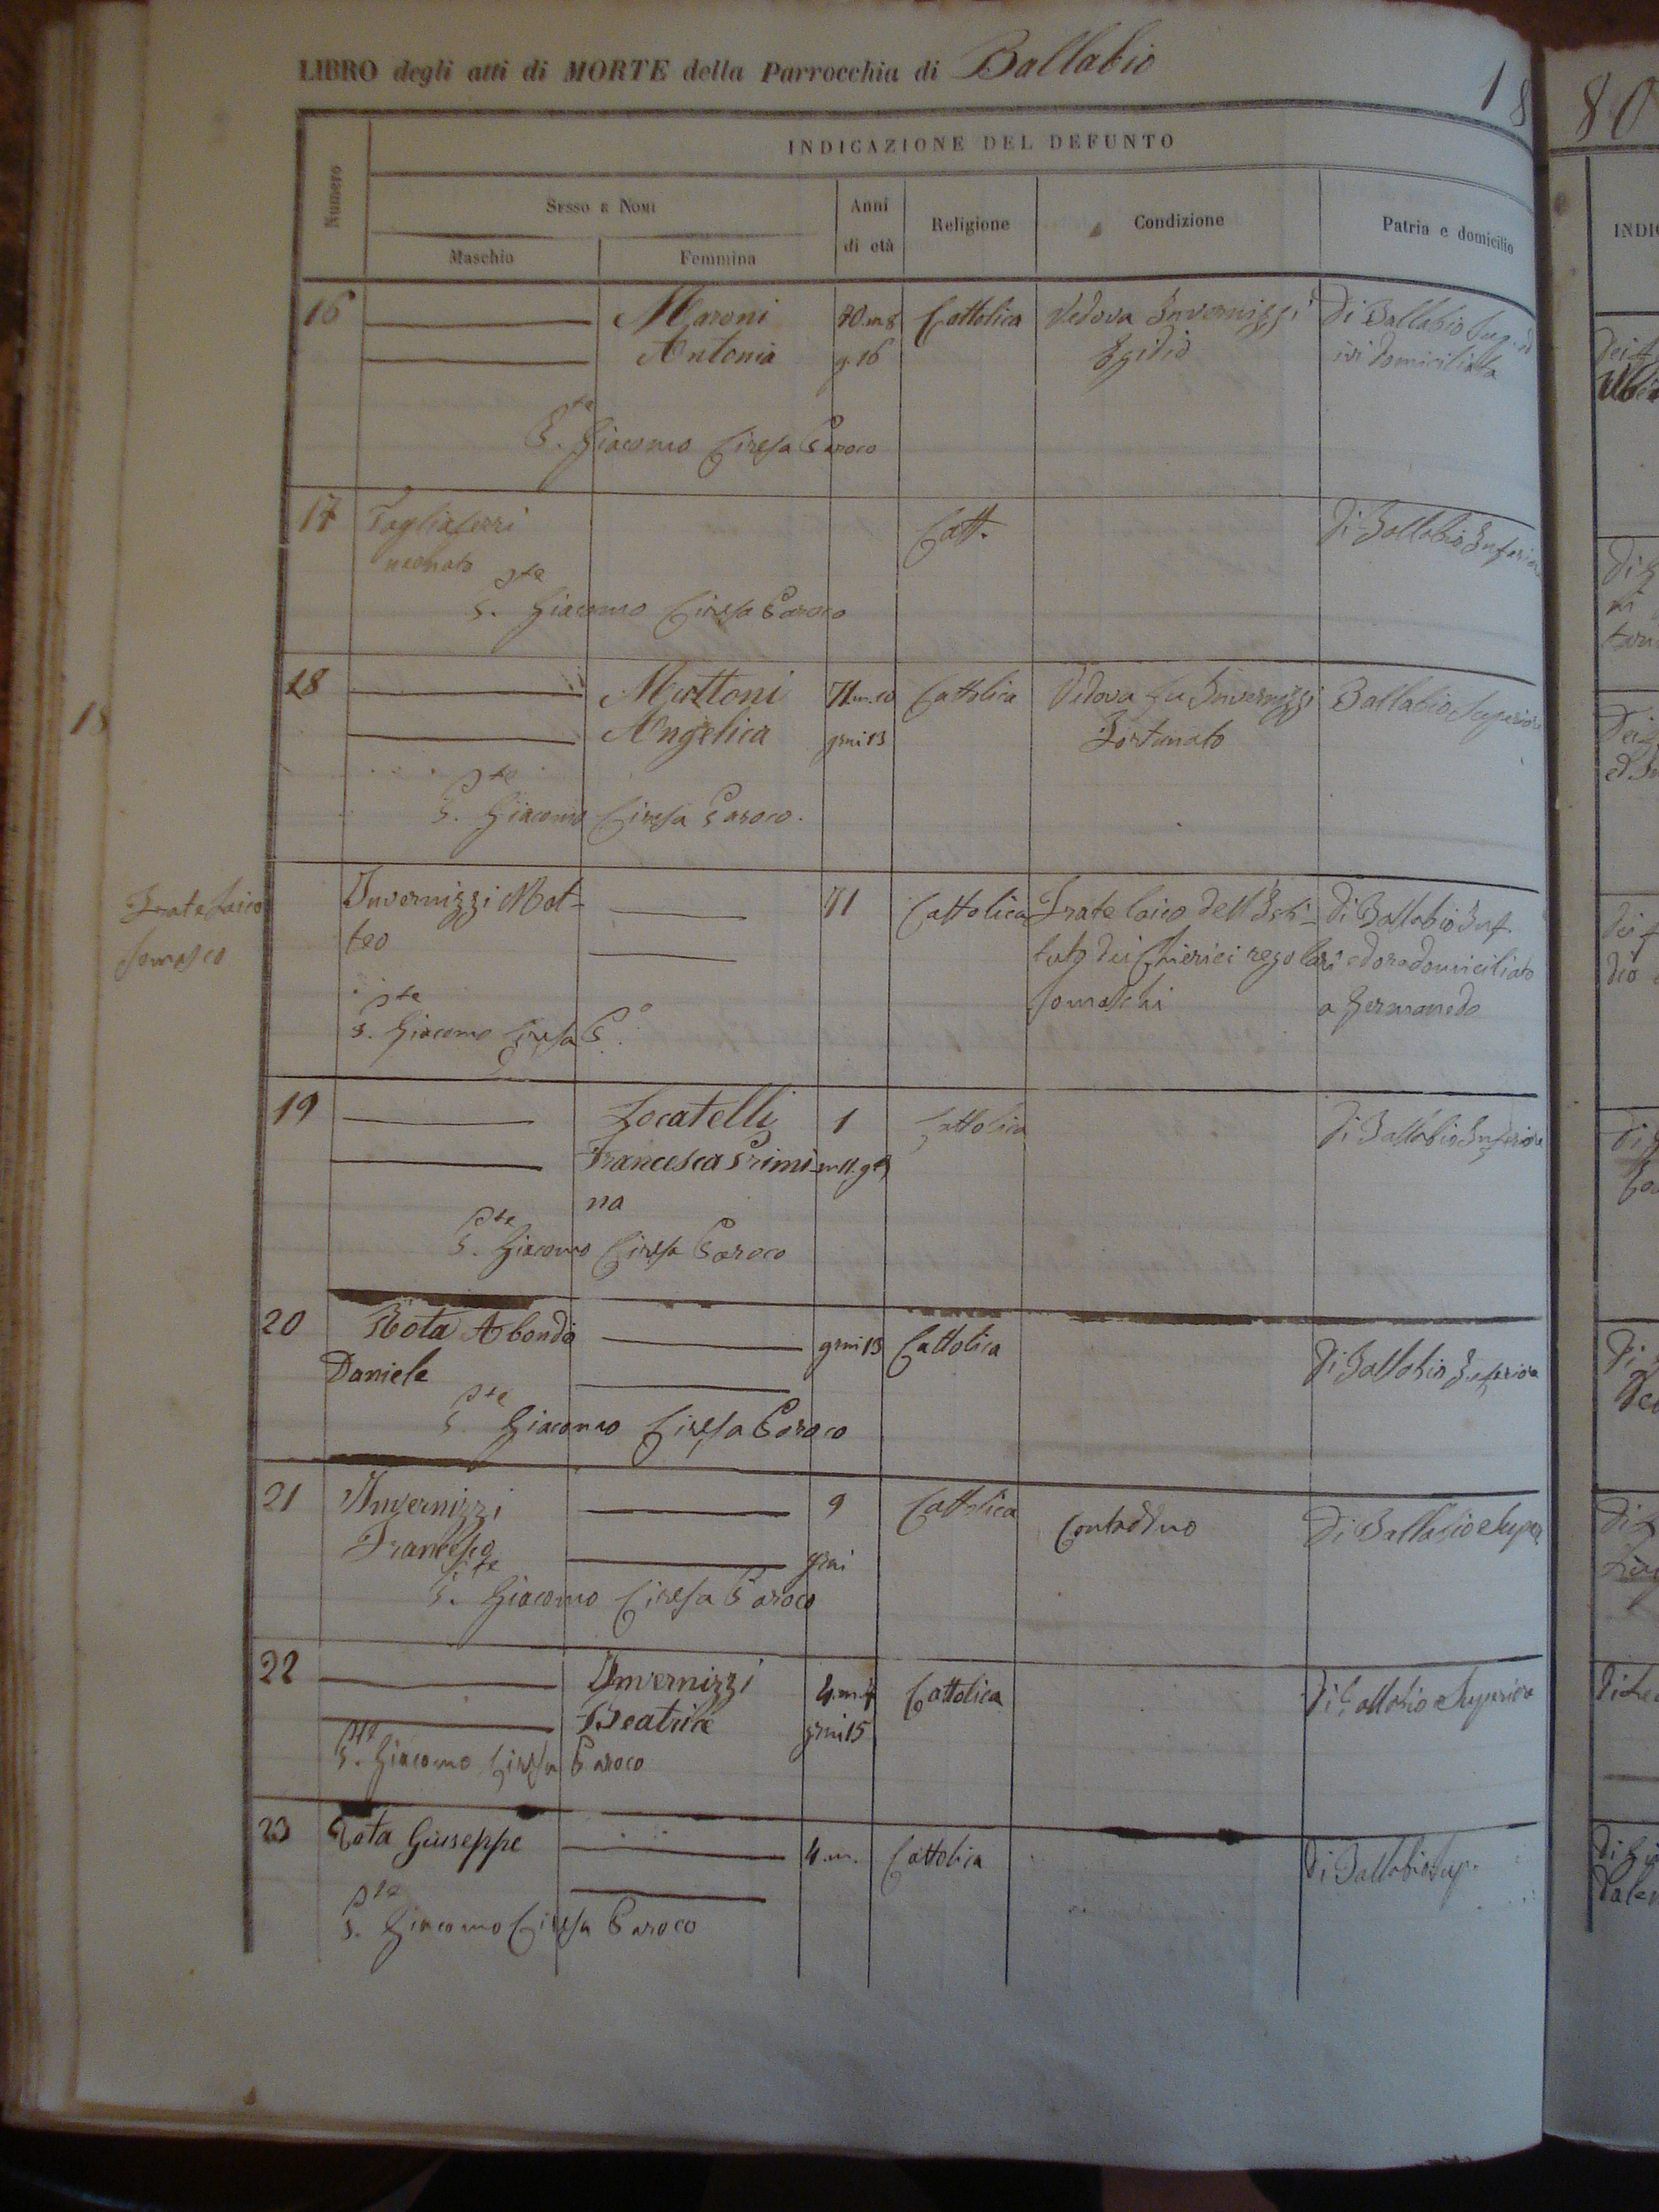 LIBRO degli atti di MORTE della Parrocchia di Ballabio
18
80
INDICAZIONE DEL DEFUNTO
Numero
Sesso e Nomi
Anni di età
Religione
Condizione
Patria e domicilio
Maschio
Femmina
INDI
16 Maroni 70. m 8 Cattolica Vedova Invernizzi Di Ballabio Sup. ed
Antonia g. 16 Egidio ivi domiciliata
Pte
S. Giacomo Ciresa Paroco
17 Tagliaferri Catt. Di Ballabio Inferiore
neonato
Pte
S. Giacomo Ciresa Paroco
18 Muttoni 71. m. 10 Cattolica Vedova fu Invernizzi Ballabio Superiore
Angelica grni 13 Fortunato
Pte
S. Giacomo Ciresa Paroco.
18
Frate laico
somasco
Invernizzi Mat- 71 Cattolica Frate laico dell' Isti- Di Ballabio Inf.
teo tuto dei Chierici regolari ed ora domiciliato
Somaschi a Germanedo
Pte
S. Giacomo Ciresa P.o
19 Locatelli 1 Cattolica Di Ballabio Inferiore
Francesca Primi- m 11. g
na
Pte
S. Giacomo Ciresa Paroco
20 Rota Abondio grni 13 Cattolica Di Ballabio Inferiore
Daniele
Pte
S. Giacomo Ciresa Paroco
21 Invernizzi 9 Cattolica Contadino Di Ballabio Super
Francesco grni
Pte
S. Giacomo Ciresa Paroco
22 Invernizzi 4. m 4 Cattolica Di Ballabio Superiore
Beatrice grni 15
Pte
S. Giacomo Ciresa Paroco
23 Rota Giuseppe 4. m. Cattolica Di Ballabio Sup.
Pte
S. Giacomo Ciresa Paroco